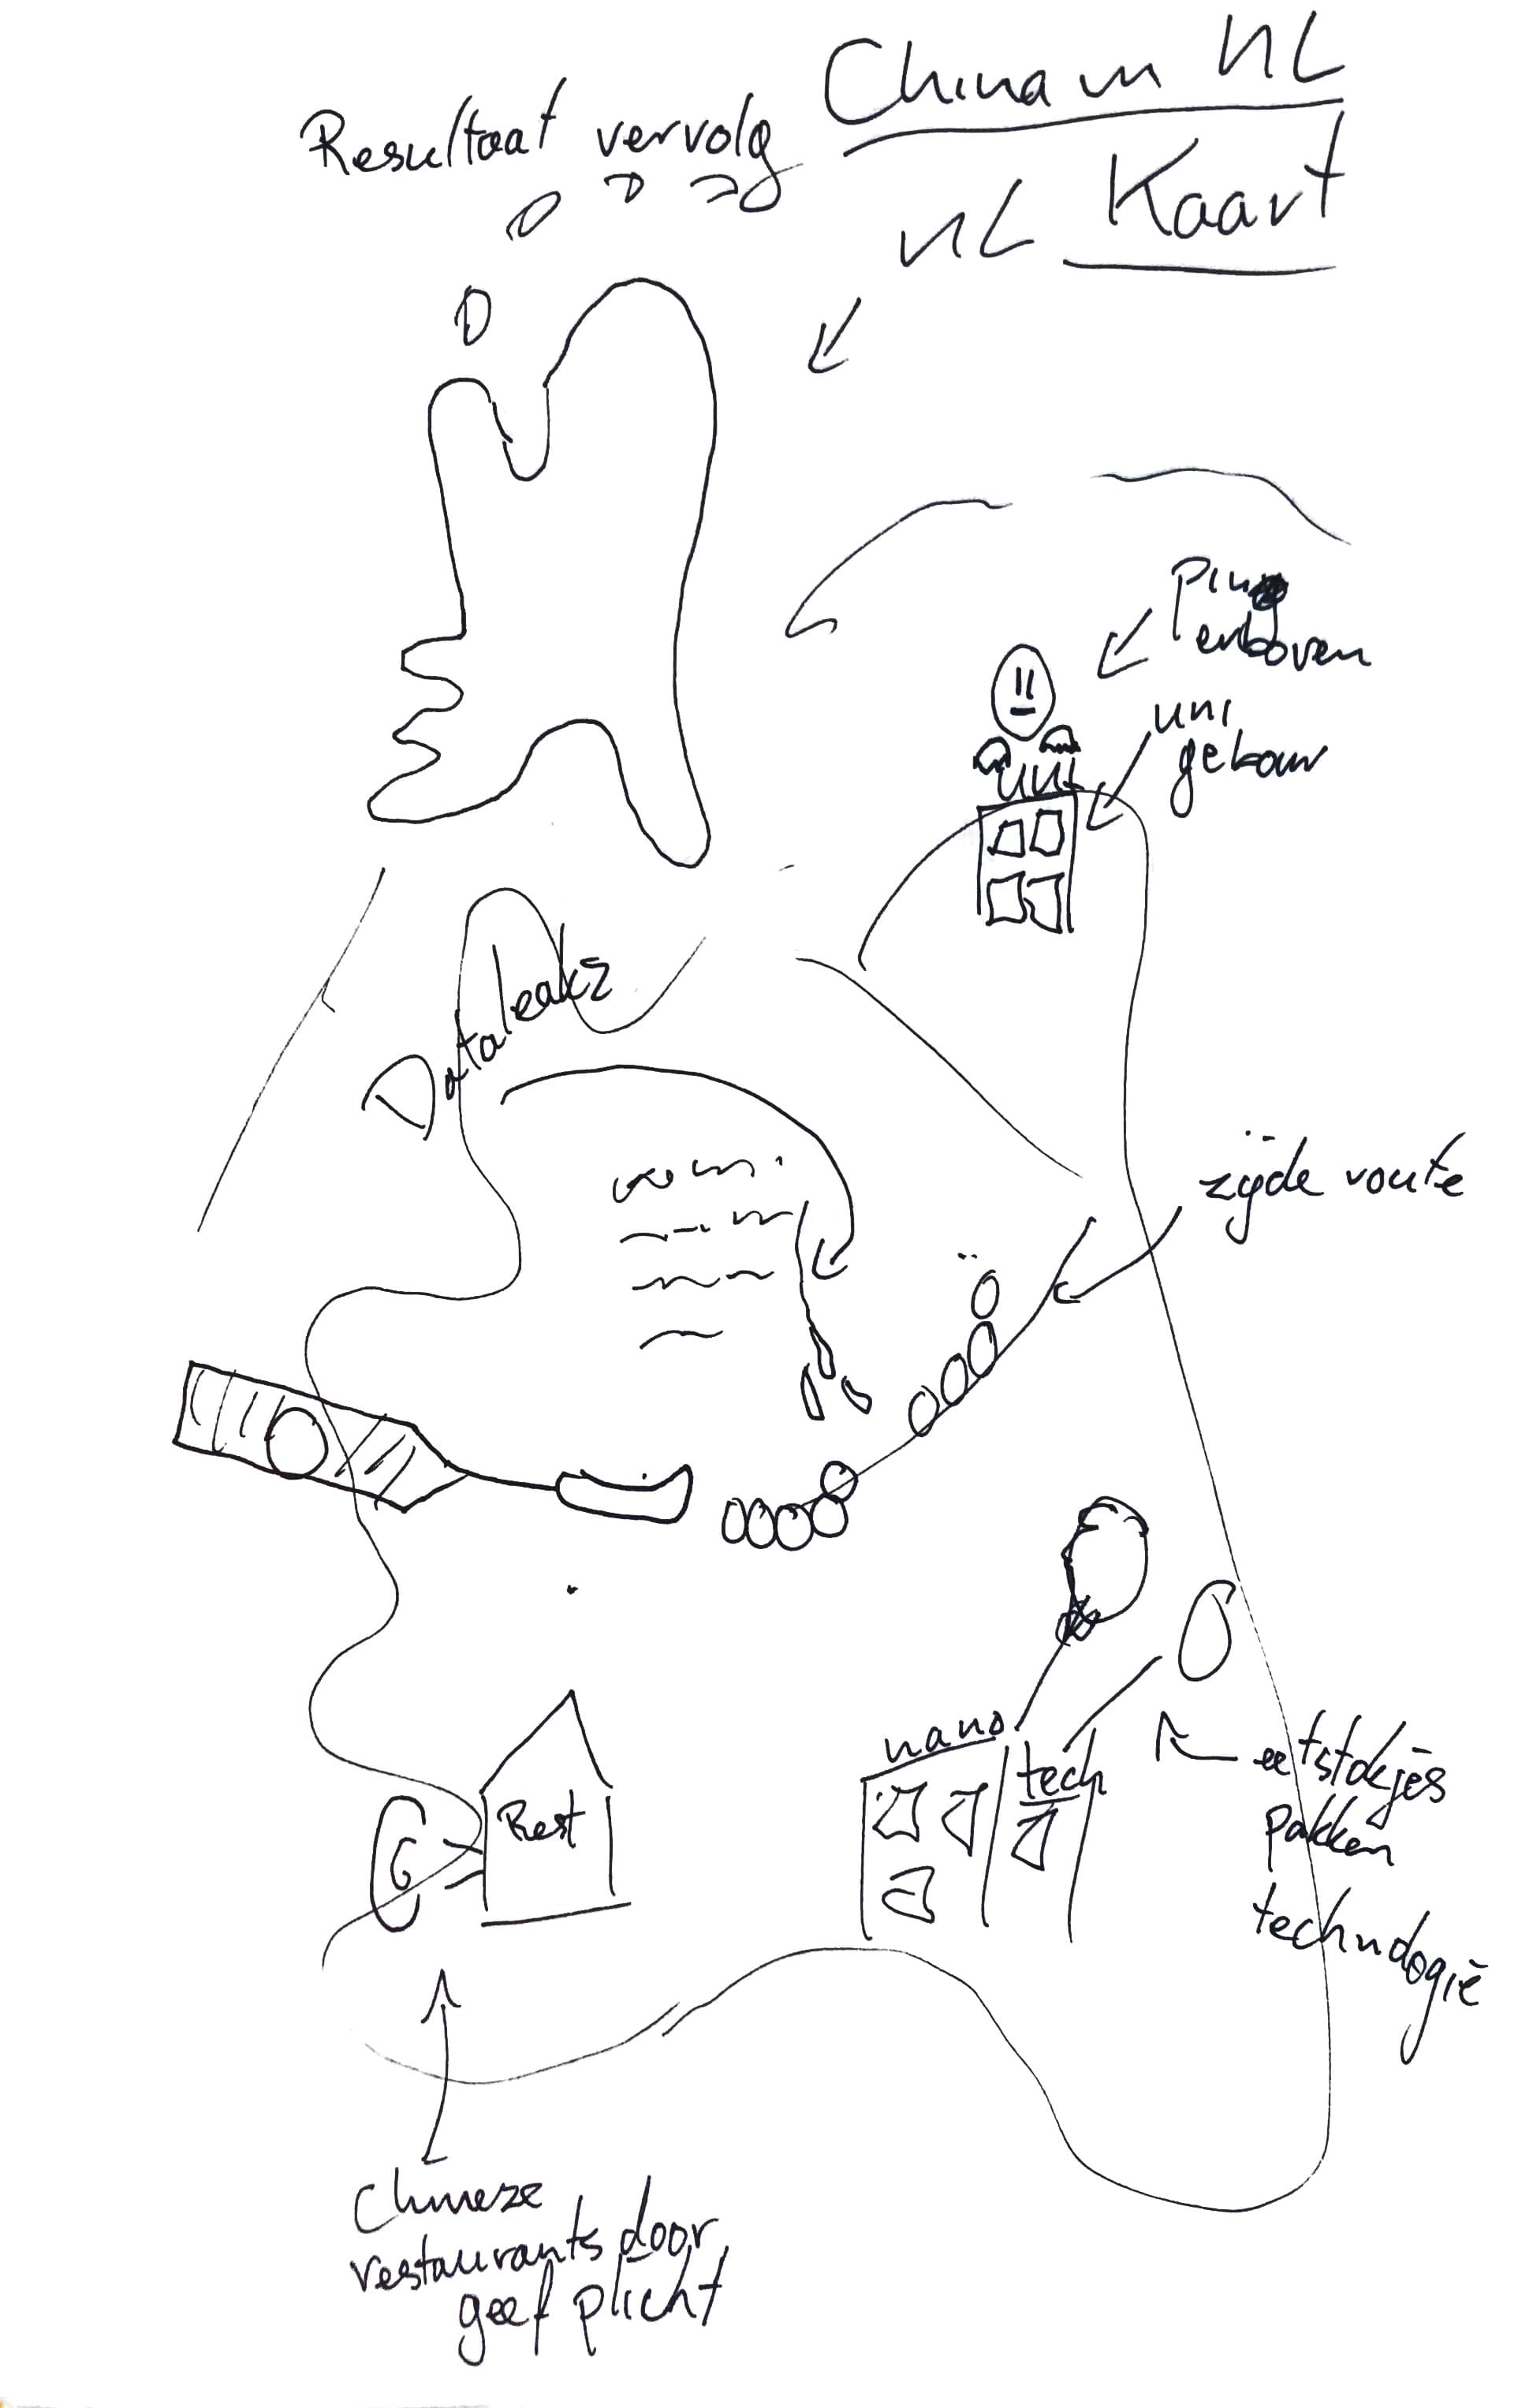 China in NL
Resultaat vervolg
NL Kaart
Ping
enboven
uni
gebouw
uni
Dataleakz
zijde route
nano
tech
eetstokjes
pakken
technologie
Rest
G
Chineze
restaurants door
geef plicht